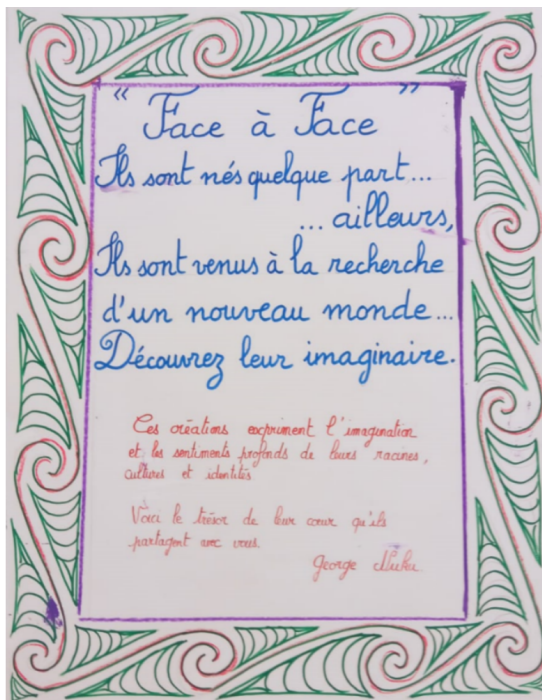 " Face à Face "
Ils sont nés quelque part...
... ailleurs,
Ils sont venus à la recherche
d'un nouveau monde...
Découvrez leur imaginaire.
Ces créations expriment l'imagination
et les sentiments profonds de leurs racines,
cultures et identités
Voici le trésor de leur cœur qu'ils
partagent avec vous.
George Nuku